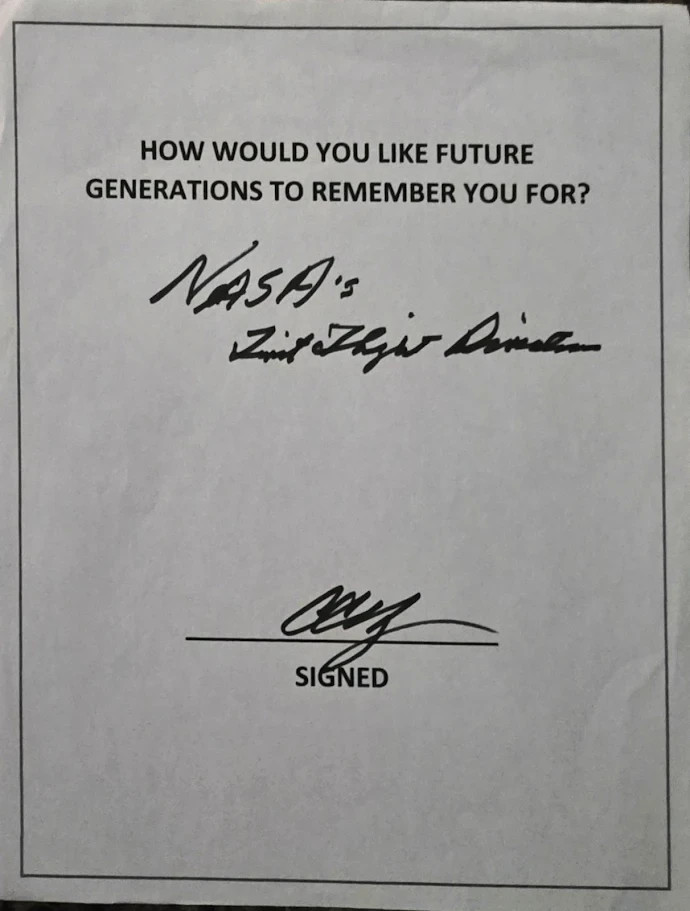 HOW WOULD YOU LIKE FUTURE
GENERATIONS TO REMEMBER YOU FOR?
NASA's
First Flight Director
SIGNED